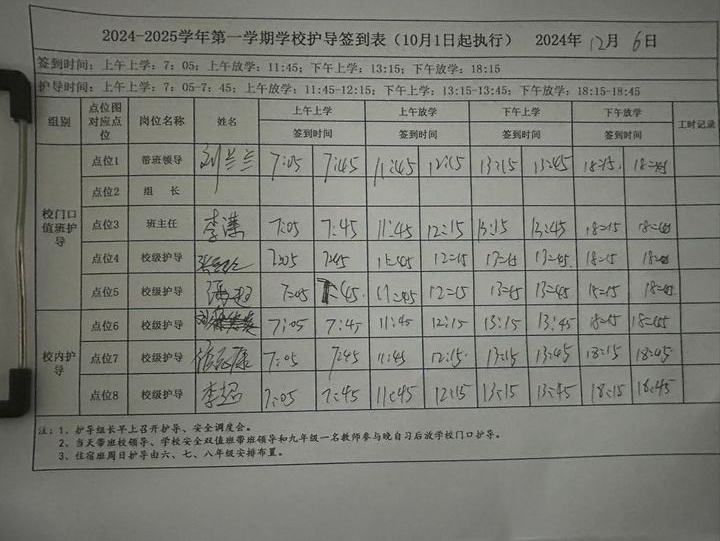 2024-2025学年第一学期学校护导签到表（10月1日起执行） 2024年 12月 6日
签到时间：上午上学：7：05；上午放学：11:45；下午上学：13:15；下午放学：18:15
护导时间：上午上学：7：05-7：45；上午放学：11:45-12:15；下午上学：13:15-13:45；下午放学：18:15-18:45
组别 点位图对应点位 岗位名称 姓名 上午上学 上午放学 下午上学 下午放学 工时记录
签到时间 签到时间 签到时间 签到时间
校门口值班护导
点位1 带班领导 刘兰兰 7:05 7:45 11:45 12:15 13:15 13:45 18:15 18:45
点位2 组 长
点位3 班主任 李 7:05 7:45 11:45 12:15 13:15 13:45 18:15 18:45
点位4 校级护导 7:05 7:45 11:45 12:15 13:15 13:45 18:15 18:45
点位5 校级护导 7:05 7:45 11:45 12:15 13:45 13:45 18:15 18:45
校内护导
点位6 校级护导 刘 7:05 7:45 11:45 12:15 13:15 13:45 18:15 18:45
点位7 校级护导 7:05 7:45 11:45 12:15 13:15 13:45 18:15 18:45
点位8 校级护导 李超 7:05 7:45 11:45 12:15 13:15 13:45 18:15 18:45
注：1、护导组长早上召开护导、安全调度会。
2、当天带班校领导、学校安全双值班带班领导和九年级一名教师参与晚自习后放学校门口护导。
3、住宿班周日护导由六、七、八年级安排布置。